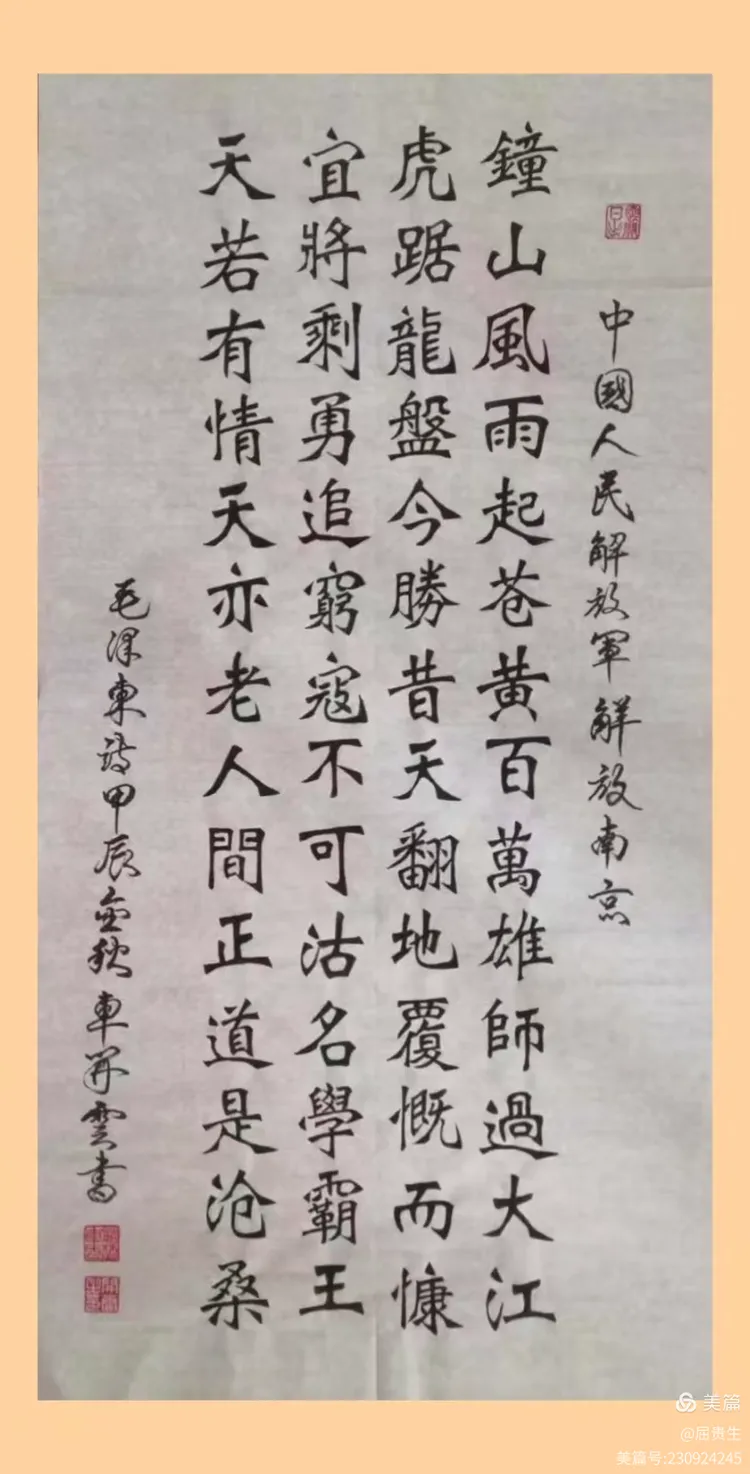 中國人民解放軍解放南京
鐘山風雨起苍黄百萬雄師過大江
虎踞龍盤今勝昔天翻地覆慨而慷
宜將剩勇追窮寇不可沽名學霸王
天若有情天亦老人間正道是沧桑
毛泽東詩甲辰金秋車开雲書
美篇
@屈贵生
美篇号:230924245